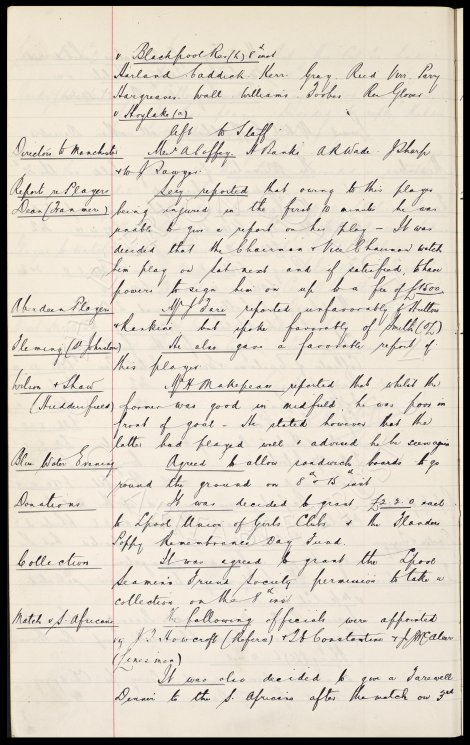 v Blackpool Res (h) 8th inst
Harland Caddick Kerr Gray Reed Wm. Parry
Hargreaves Wall Williams Forbes Glover
v Hoylake (a)
left to Staff
Directors to Manchester Messrs A Coffey H Banks A R Wade J Sharp
& W J Sawyer
Reports re Players Secy reported that owing to this player
Dean (Tranmere) being injured in the first 10 minutes he was
unable to give a report on his play – It was
decided that the Chairman & Vice Chairman watch
him play on Sat next and if satisfied, to have
powers to sign him on up to a fee of £1500
Aberdeen Players Mr J Fare reported unfavourably of Hutton
& Rankine but spoke favorably of Smith (O/L)
Fleming (St Johnston) He also gave a favorable report of
this player
Wilson & Shaw Mr H Makepeace reported that whilst the
(Huddersfield) former was good in midfield he was poor in
front of goal – He stated however that the
latter had played well & advised he be seen again
Blue Water Evening Agreed to allow sandwich boards to go
round the ground on 8th & 15th inst
Donations It was decided to grant £2.2.0 each
to Lpool Union of Girls Clubs & the Flanders
Poppy Remembrance Day Fund.
Collection It was agreed to grant the Lpool
Seamens Friend Society permission to take a
collection on the 8th inst
Match v S. Africans The following officials were appointed
J. T. Howcroft (Referee) Constantine &
(Linesmen)
It was also decided to give a Farewell
Dinner to the S. Africans after the match on 3rd